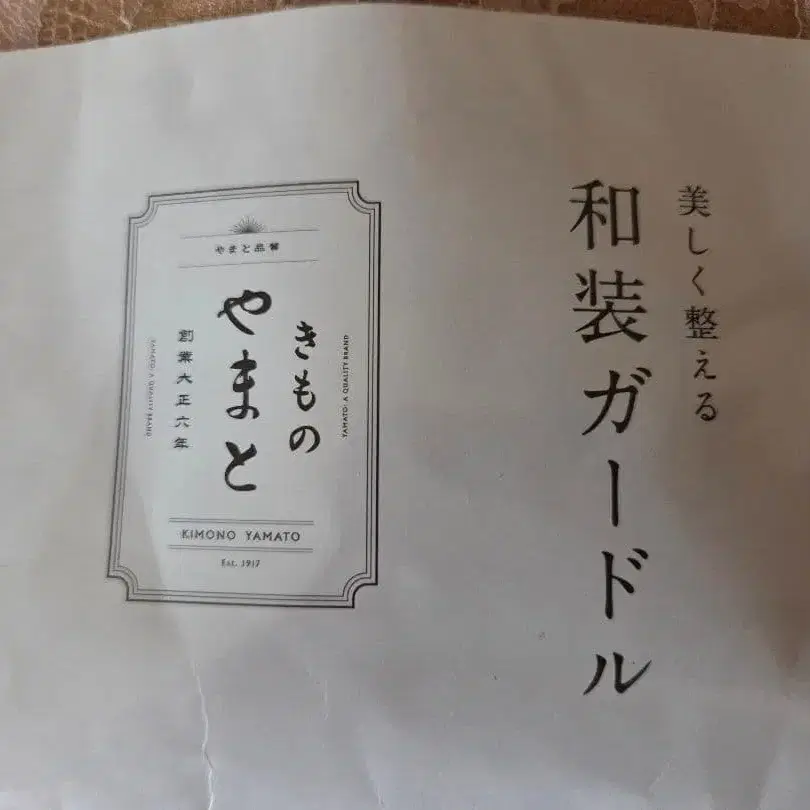 美しく整える
和装ガードル
やまと品質
きもの
やまと
創業大正六年
YAMATO: A QUALITY BRAND
YAMATO: A QUALITY BRAND
KIMONO YAMATO
Est. 1917